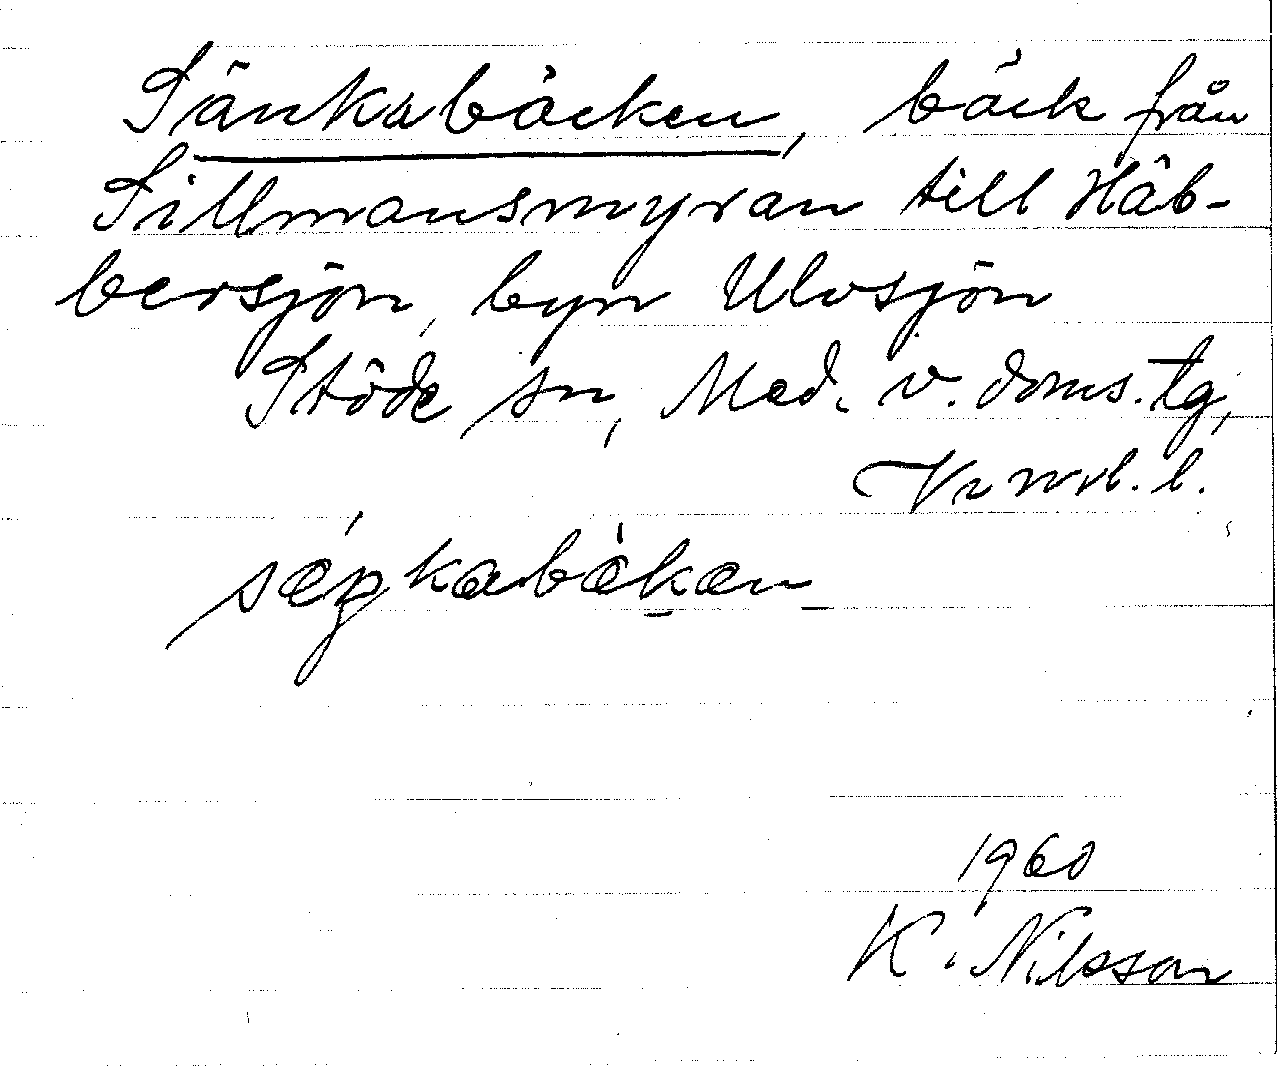 Sänkabäcken, bäck från
Sillmansmyran till Häb-
bersjön, byn Ulvsjön
Stöde sn, Med. v. doms. tg,
Vrnrl. l.
sæŋkabækæn
1960
K. Nilsson